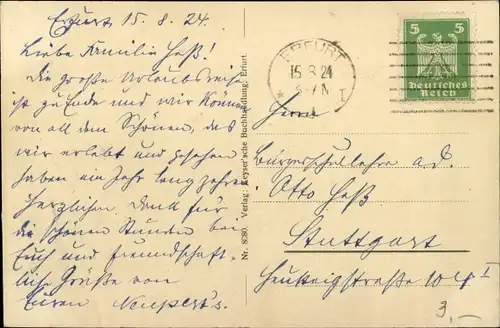 Erfurt 15.8.24.
Liebe Familie Heß!
Die große Urlaubsreise
ist zu Ende und wir können
von all dem Schönen, das
wir erlebt und gesehen
haben ein Jahr lang zehren.
Herzlichen Dank für
die schönen Stunden bei
Euch und freundschaft-
liche Grüße von
Euren Neupert's.
Nr. 8080. Verlag: Keyser'sche Buchhandlung, Erfurt.
ERFURT
15.8.24
* 1 I
5 5
Deutsches
Reich
Herrn
Bürgerschullehrer a. D.
Otto Heß
Stuttgart
10 I
3,–